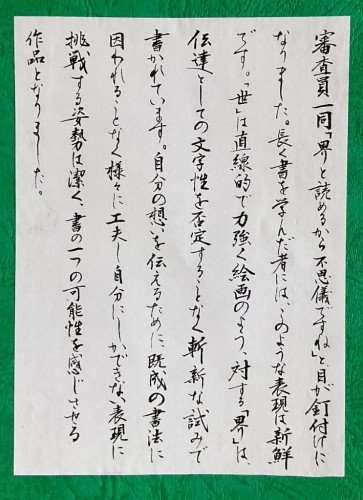 審査員一同「界と読めるから不思議ですね」と目が釘付けに
なりました。長く書を学んだ者には、このような表現は新鮮
です。「世」は直線的で力強く絵画のよう、対する「界」は、
伝達としての文字性を否定することなく斬新な試みで
書かれています。自分の想いを伝えるために、既成の書法に
因われることなく様々に工夫し自分にしかできない表現に
挑戦する姿勢は潔く、書の一つの可能性を感じさせる
作品となりました。